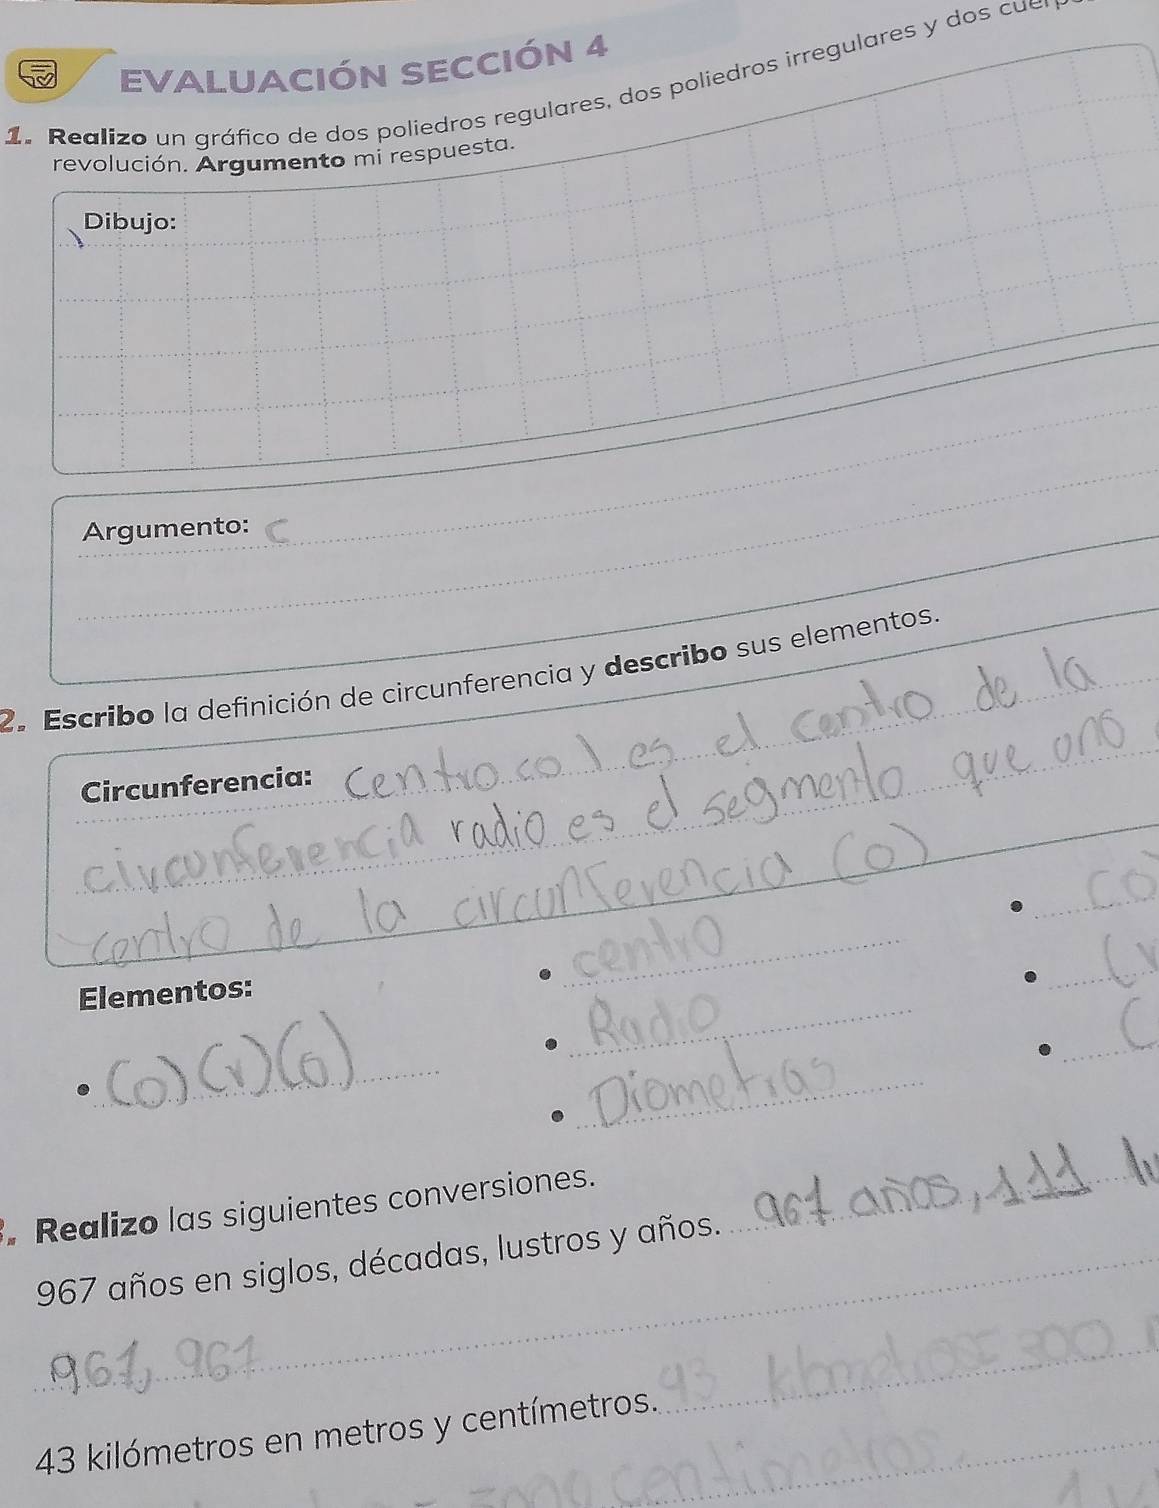 EVALUACIÓN SECCIÓN 4
1. Realizo un gráfico de dos poliedros regulares, dos poliedros irregulares y dos
revolución. Argumento mi respuesta.
Dibujo:
Argumento: C
2. Escribo la definición de circunferencia y describo sus elementos.
Circunferencia: Centro co) es el centro de la
circunferencia radio es el segmento que
centro de la circunferencia (0)
Elementos:
• (0) (r) (0)
• centro
• Radio
• Diometrias
• (0
• (r
• (
Realizo las siguientes conversiones.
967 años en siglos, décadas, lustros y años. 967 años, 111
967, 967
43 kilómetros en metros y centímetros. 93
centimetros